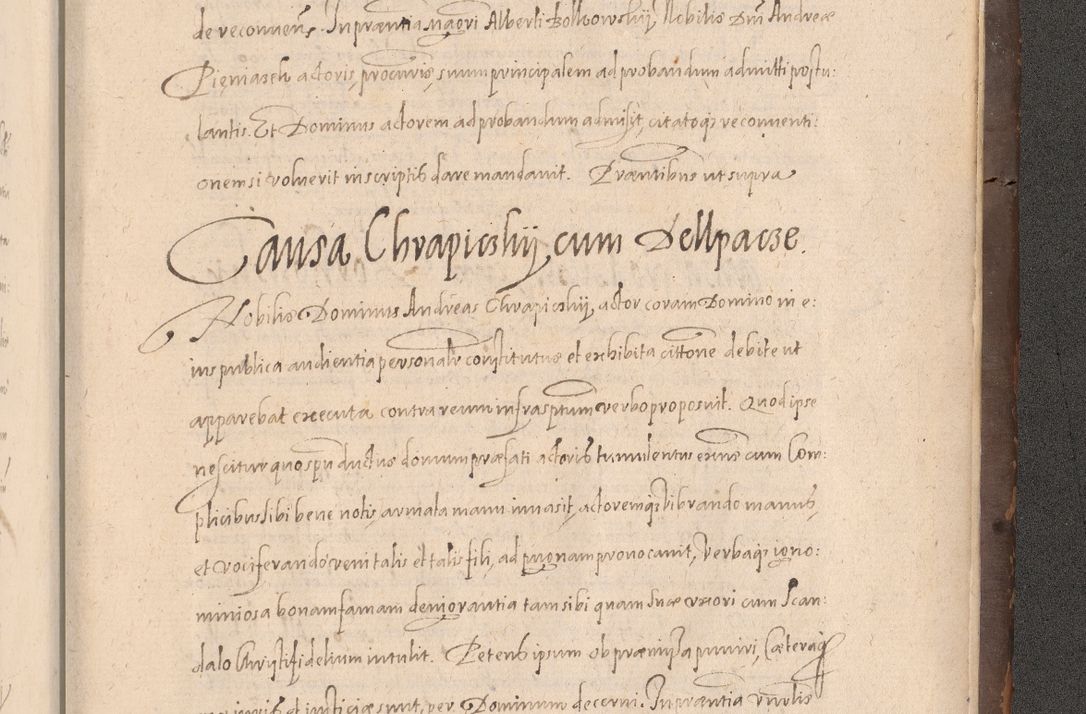 de reconvens. In praentia Magri Alberti Bolkowskij, Nobilis Dni Andreæ
Pieniazek actoris procuris, suum principalem ad probandum admitti postu:
lantis. Et Dominus actorem ad probandum admisit, citatoq; reconventi:
onem si voluerit in scriptis dare mandavit. Præntibus ut supra
Causa Chrapiczkij cum Dellpacze.
Nobilis Dominus Andreas Chrapiczkij, actor coram Domino in e:
ius publica audientia personalr constitutus et exhibita cittone debite ut
apparebat executa contra reum infrasptum verbo proposuit. Quod ipse
nescitur quo spu ductus domum præfati actoris tumulentus eiuns cum Com:
plicibus sibi bene notis, armata manu invasit, actoremq; librando manus,
et vociferando veni talis et talis fili, ad pugnam provocavit, Verbaq; igno:
miniosa bonam famam denigrantia tam sibi quam suæ uxori cum Scan:
dalo Christifidelium intulit. Petens ipsum ob præmissa puniri, Cæteraq;
iuris et iusticiæ sunt, per Dominum decerni. In præntia